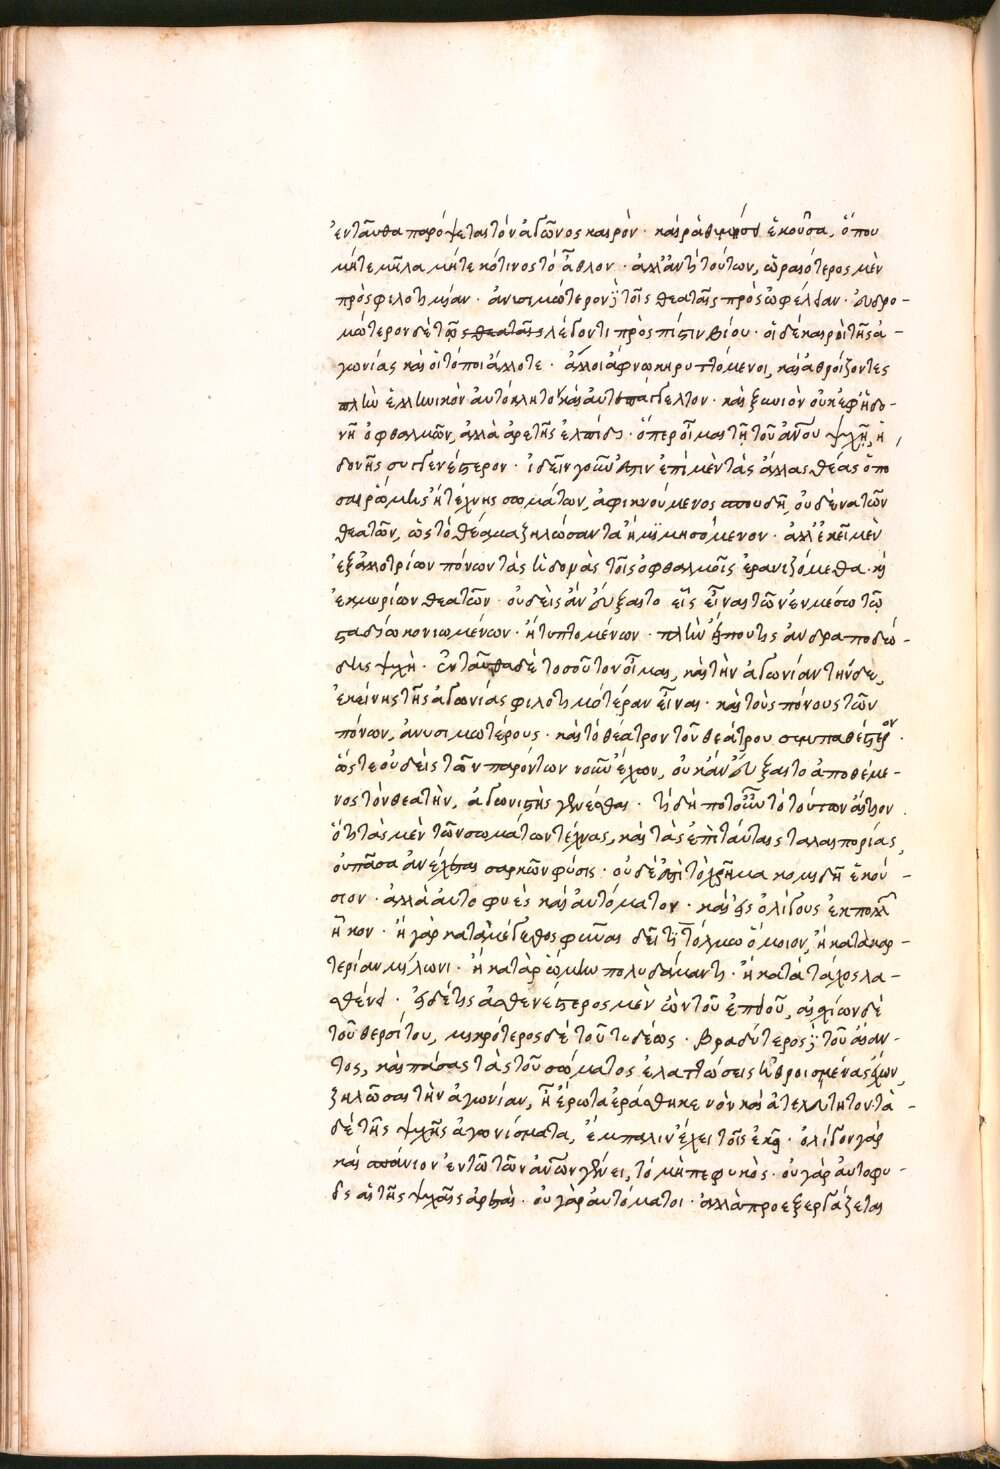 ἐνταῦθα παρόψεται τὸν ἀγῶνος καιρὸν · καὶ ῥαθυμήσει ἑκοῦσα, ὅπου
μήτε μῆλα μήτε κότινος τὸ ἆθλον · ἀλλ' ἀντὶ τούτων, ὡραιότερος μὲν
πρὸς φιλοτιμίαν · ἀνυσιμώτερον δὲ τοῖς θεαταῖς πρὸς ὠφέλειαν · εὐδρο-
μώτερον δὲ τῷ λέγοντι πρὸς πίστιν βίου · οἱ δὲ καιροὶ τῆς ἀ-
γωνίας καὶ οἱ τόποι ἄλλοτε · ἄλλοι ἄφνω κηρυττόμενοι, καὶ ἀθροίζοντες
πλὴν ἑλληνικὸν αὐτόκλητον καὶ αὐτεπάγγελτον · καὶ ξυνιὸν οὐκ ἐφ' ἡδο-
νῇ ὀφθαλμῶν, ἀλλὰ ἀρετῆς ἐλπίδι · ὅπερ οἶμαι τῇ τοῦ ἀνου ψυχῇ, ἡ
δονῆς συγγενέστερον · ἰδεῖν γοῦν ἔστιν ἐπὶ μὲν τὰς ἄλλας θέας ὁπό
σαι ῥώμης ἢ τέχνης σωμάτων, ἀφικνούμενος σπουδῇ, οὐδένα τῶν
θεατῶν, ὡς τὸ θέαμα ζηλώσαντα ἢ μιμησόμενον · ἀλλ' ἐκεῖ μὲν
ἐξ ἀλλοτρίων πόνων τὰς ἡδονὰς τοῖς ὀφθαλμοῖς ἐρανιζόμεθα · κὶ
ἐκ μυρίων θεατῶν · οὐδεὶς ἂν εὔξαιτο εἷς εἶναι τῶν ἐν μέσω τῷ
σταδίω κονιωμένων · ἢ τυπτομένων · πλὴν εἴ που τις ἀνδραποδώ-
δης ψυχή · ἐνταῦθα δὲ τοσοῦτον οἶμαι, καὶ τὴν ἀγωνίαν τήνδε,
ἐκείνης τῆς ἀγωνίας φιλοτιμότέραν εἶναι · καὶ τοὺς πόνους τῶν
πόνων, ἀνυσιμωτέρους · καὶ τὸ θέατρον τοῦ θεάτρου συμπαθέστερον ·
ὥστε οὐδεὶς τῶν παρόντων νοῦν ἔχων, οὐκ ἂν εὔξαιτο ἀποθέμε-
νος τὸν θεατὴν, ἀγωνιστὴς γενέσθαι · τί δή ποτ' οὖν τὸ τούτων αἴτιον
ὅτι τὰς μὲν τῶν σωμάτων τέχνας, καὶ τὰς ἐπὶ ταύταις ταλαιπορίας,
οὐ πᾶσα ἀνέχεται σαρκῶν φύσις · οὐδέ ἐστι τὸ χρῆμα κομιδῆ ἑκού-
σιον · ἀλλὰ αὐτοφυὲς καὶ αὐτόματον · καὶ εἰς ὀλίγους ἐκ πολλῶν
ἧκον · ἢ γὰρ κατὰ μέγεθος φῦναι δεῖ τῷ τόλμω ὅμοιον, ἢ κατὰ καρ-
τερίαν μίλωνι · ἢ κατὰ ῥώμην πολυδάμαντι · ἢ κατὰ τάχος λα-
σθένει · εἰ δέ τις ἀσθενέστερος μὲν ὢν τοῦ ἐπειοῦ, αἰσχίων δὲ
τοῦ θερσίτου, μικρότερος δὲ τοῦ τυδέως · βραδύτερος δὲ τοῦ αἴαν-
τος, καὶ πάσας τὰς τοῦ σώματος ἐλαττώσεις ἠθροισμένας ἔχων,
ζηλῶσαι τὴν ἀγωνίαν, ἦ ἔρωτα ἐράσθη κενὸν καὶ ἀτελεύτητον · τὰ -
δὲ τῆς ψυχῆς ἀγωνίσματα, ἔμπαλιν ἔχει τοῖς ἐκεῖ · ὀλίγον γάρ
καὶ σπάνιον ἐν τῶ τῶν ἀνων γένει, τὸ μὴ πεφυκὸς · οὐ γὰρ αὐτοφυ-
εῖς αἱ τῆς ψυχῆς ἀρεταὶ · οὐ γὰρ αὐτόματοι · ἀλλὰ προεξεργάζεται